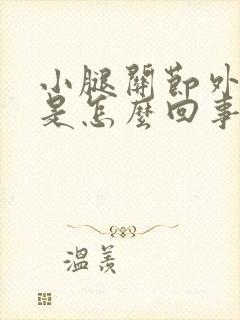 小腿關節外
是怎麼回事
溫羨